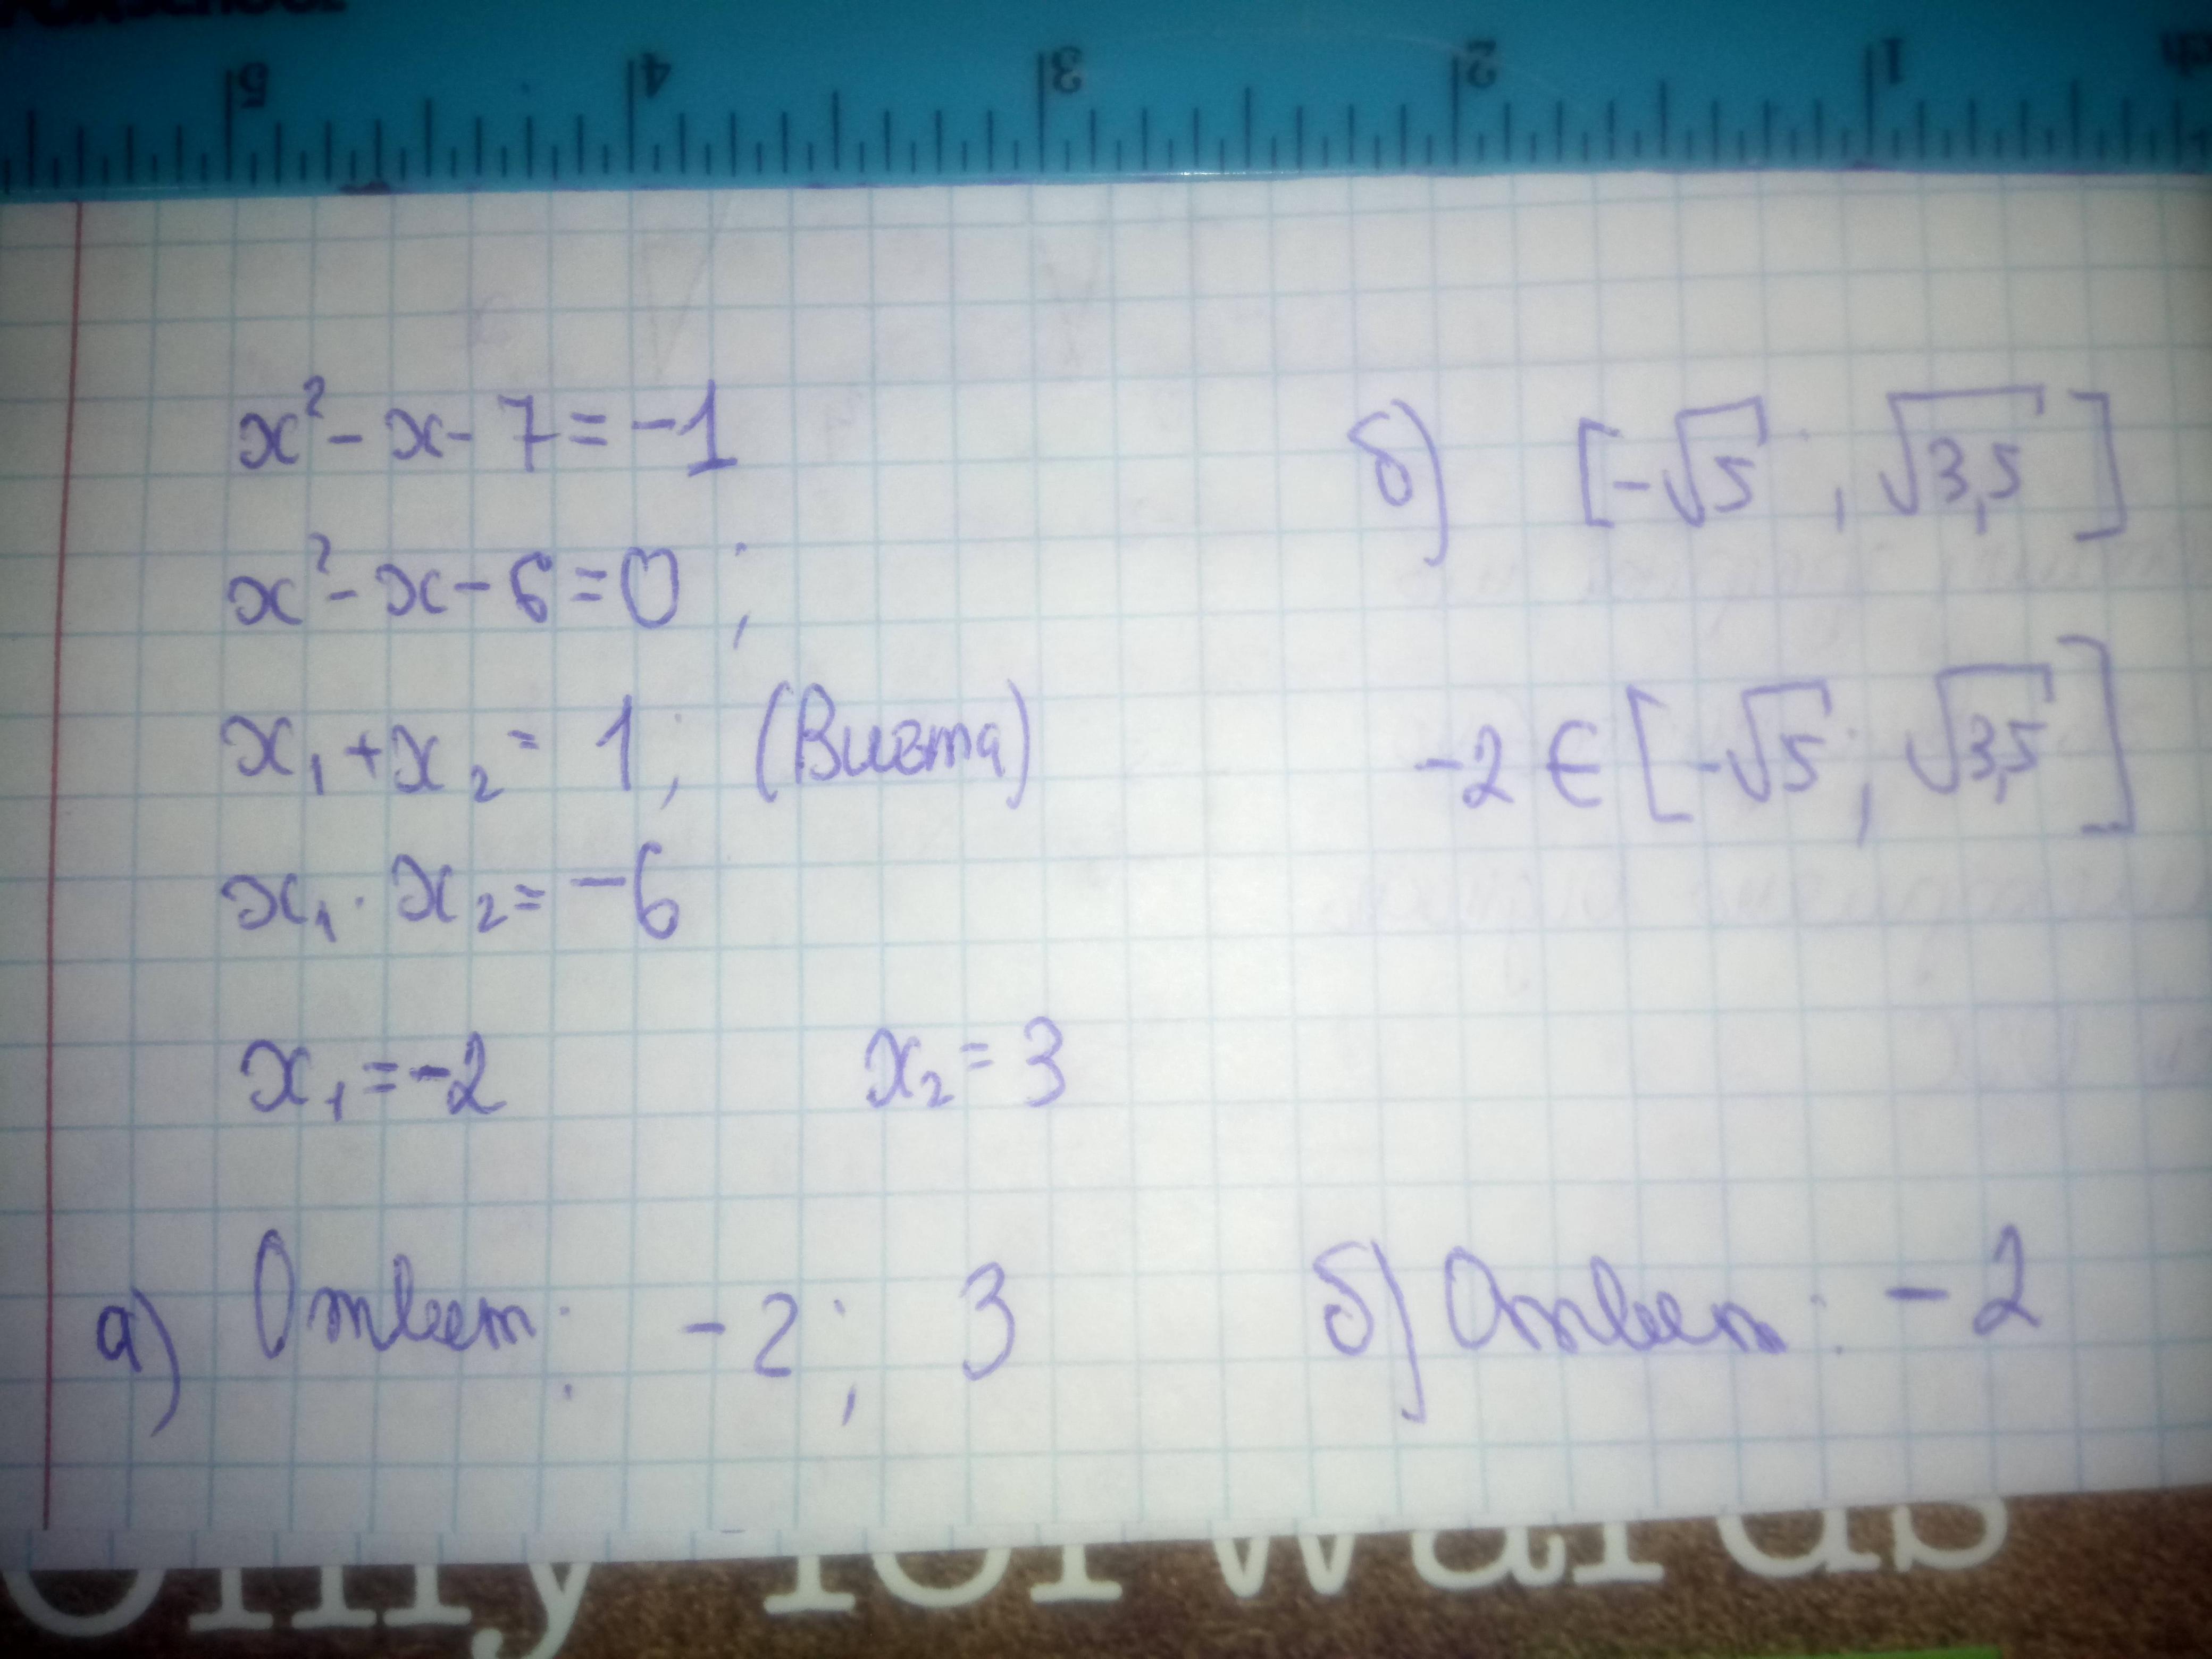 5 4 3 2 1
x² - x - 7 = -1
x² - x - 6 = 0;
x₁ + x₂ = 1; (Виета)
x₁ · x₂ = -6
x₁ = -2 x₂ = 3
а) Ответ: -2; 3
б) [-√5; √3,5]
-2 ∈ [-√5; √3,5]
б) Ответ: -2
Only forwards